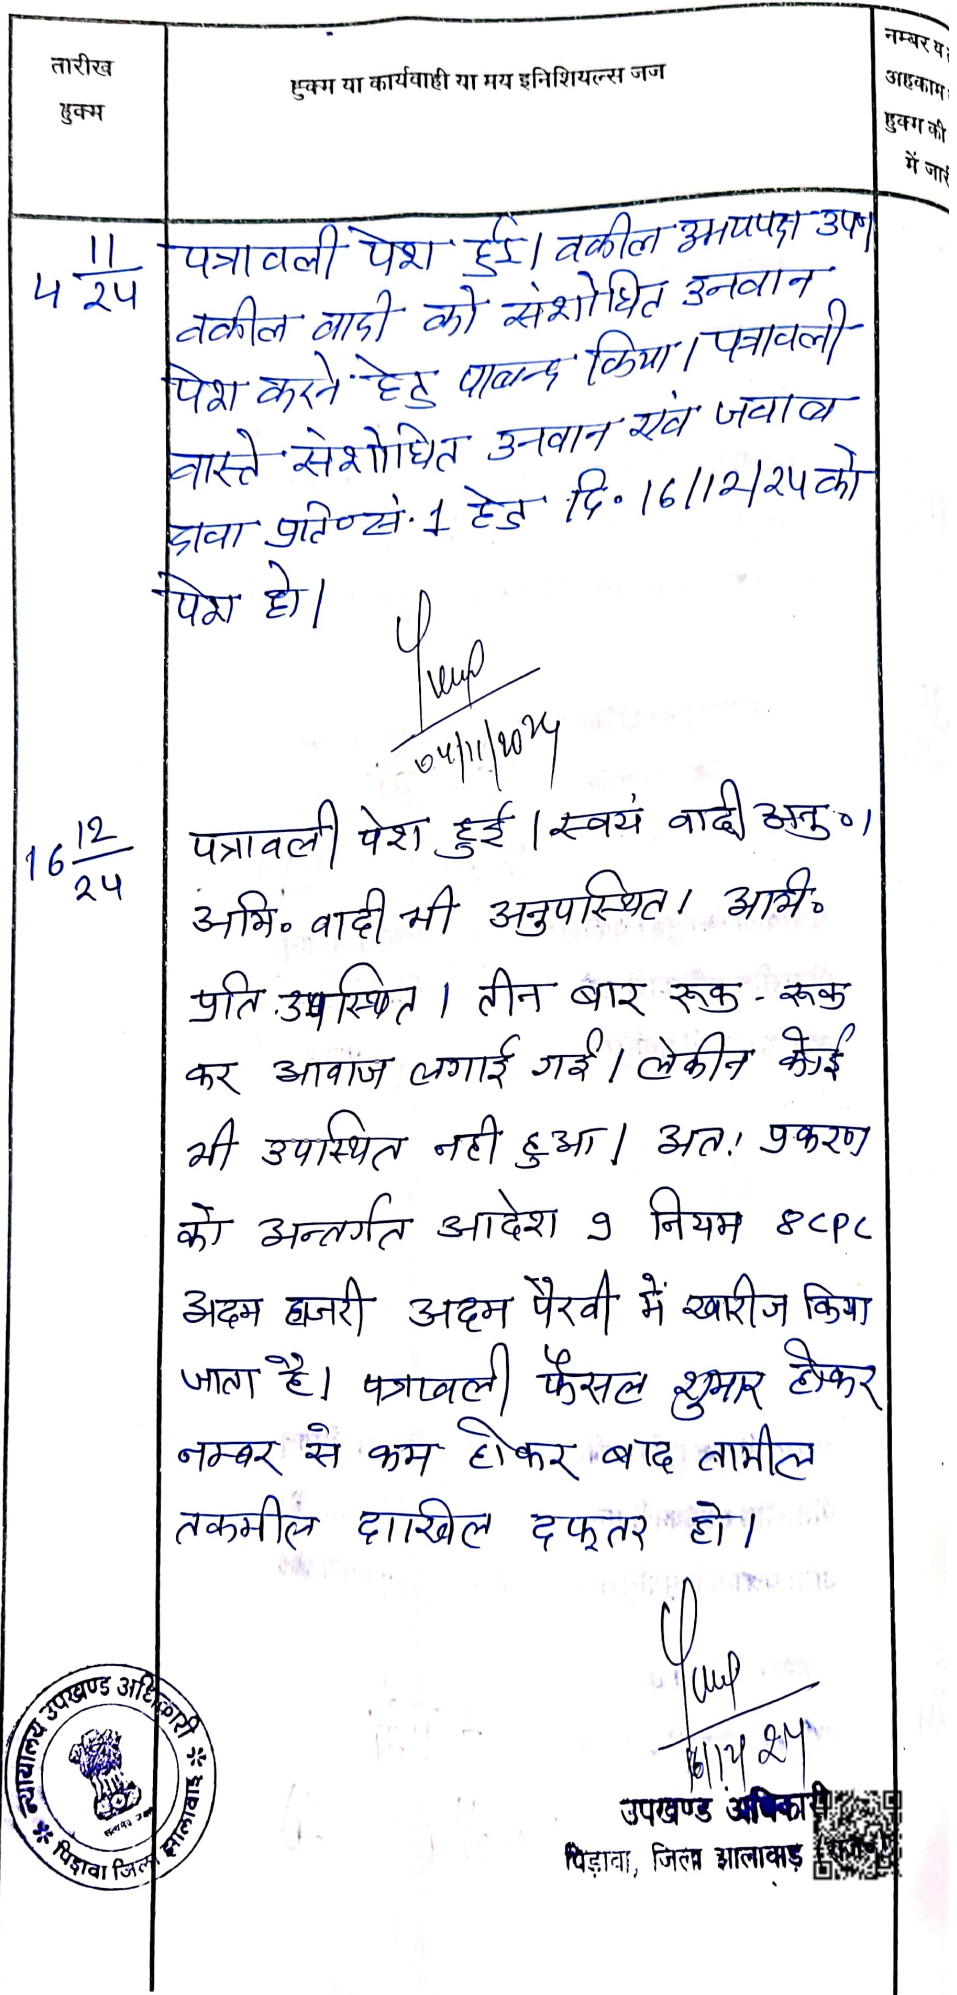 तारीख
हुक्म
हुक्म या कार्यवाही या मय इनिशियल्स जज
नम्बर व
अहकाम
हुक्म की
में जारी
4 11/24
पत्रावली पेश हुई। वकील उभयपक्ष उप०
वकील वादी को संशोधित उनवान
पेश करने हेतु पाबन्द किया। पत्रावली
वास्ते संशोधित उनवान एवं जवाब
दावा प्रति०सं. 1 हेतु दि० 16/12/24 को
पेश हो।
04/11/2024
16 12/24
पत्रावली पेश हुई। स्वयं वादी अनु०।
अभि० वादी भी अनुपस्थित। अभि०
प्रति उपस्थित। तीन बार रूक - रूक
कर आवाज लगाई गई। लेकीन कोई
भी उपस्थित नही हुआ। अत: प्रकरण
को अन्तर्गत आदेश 9 नियम 8 CPC
अदम हाजरी अदम पैरवी में खारीज किया
जाता है। पत्रावली फैसल शुमार होकर
नम्बर से कम होकर बाद तामील
तकमील दाखिल दफ्तर हो।
16/12/24
उपखण्ड अधिकारी
पिड़ावा, जिला झालावाड़ (राज०)
न्यायालय उपखण्ड अधिकारी
पिड़ावा जिला झालावाड़